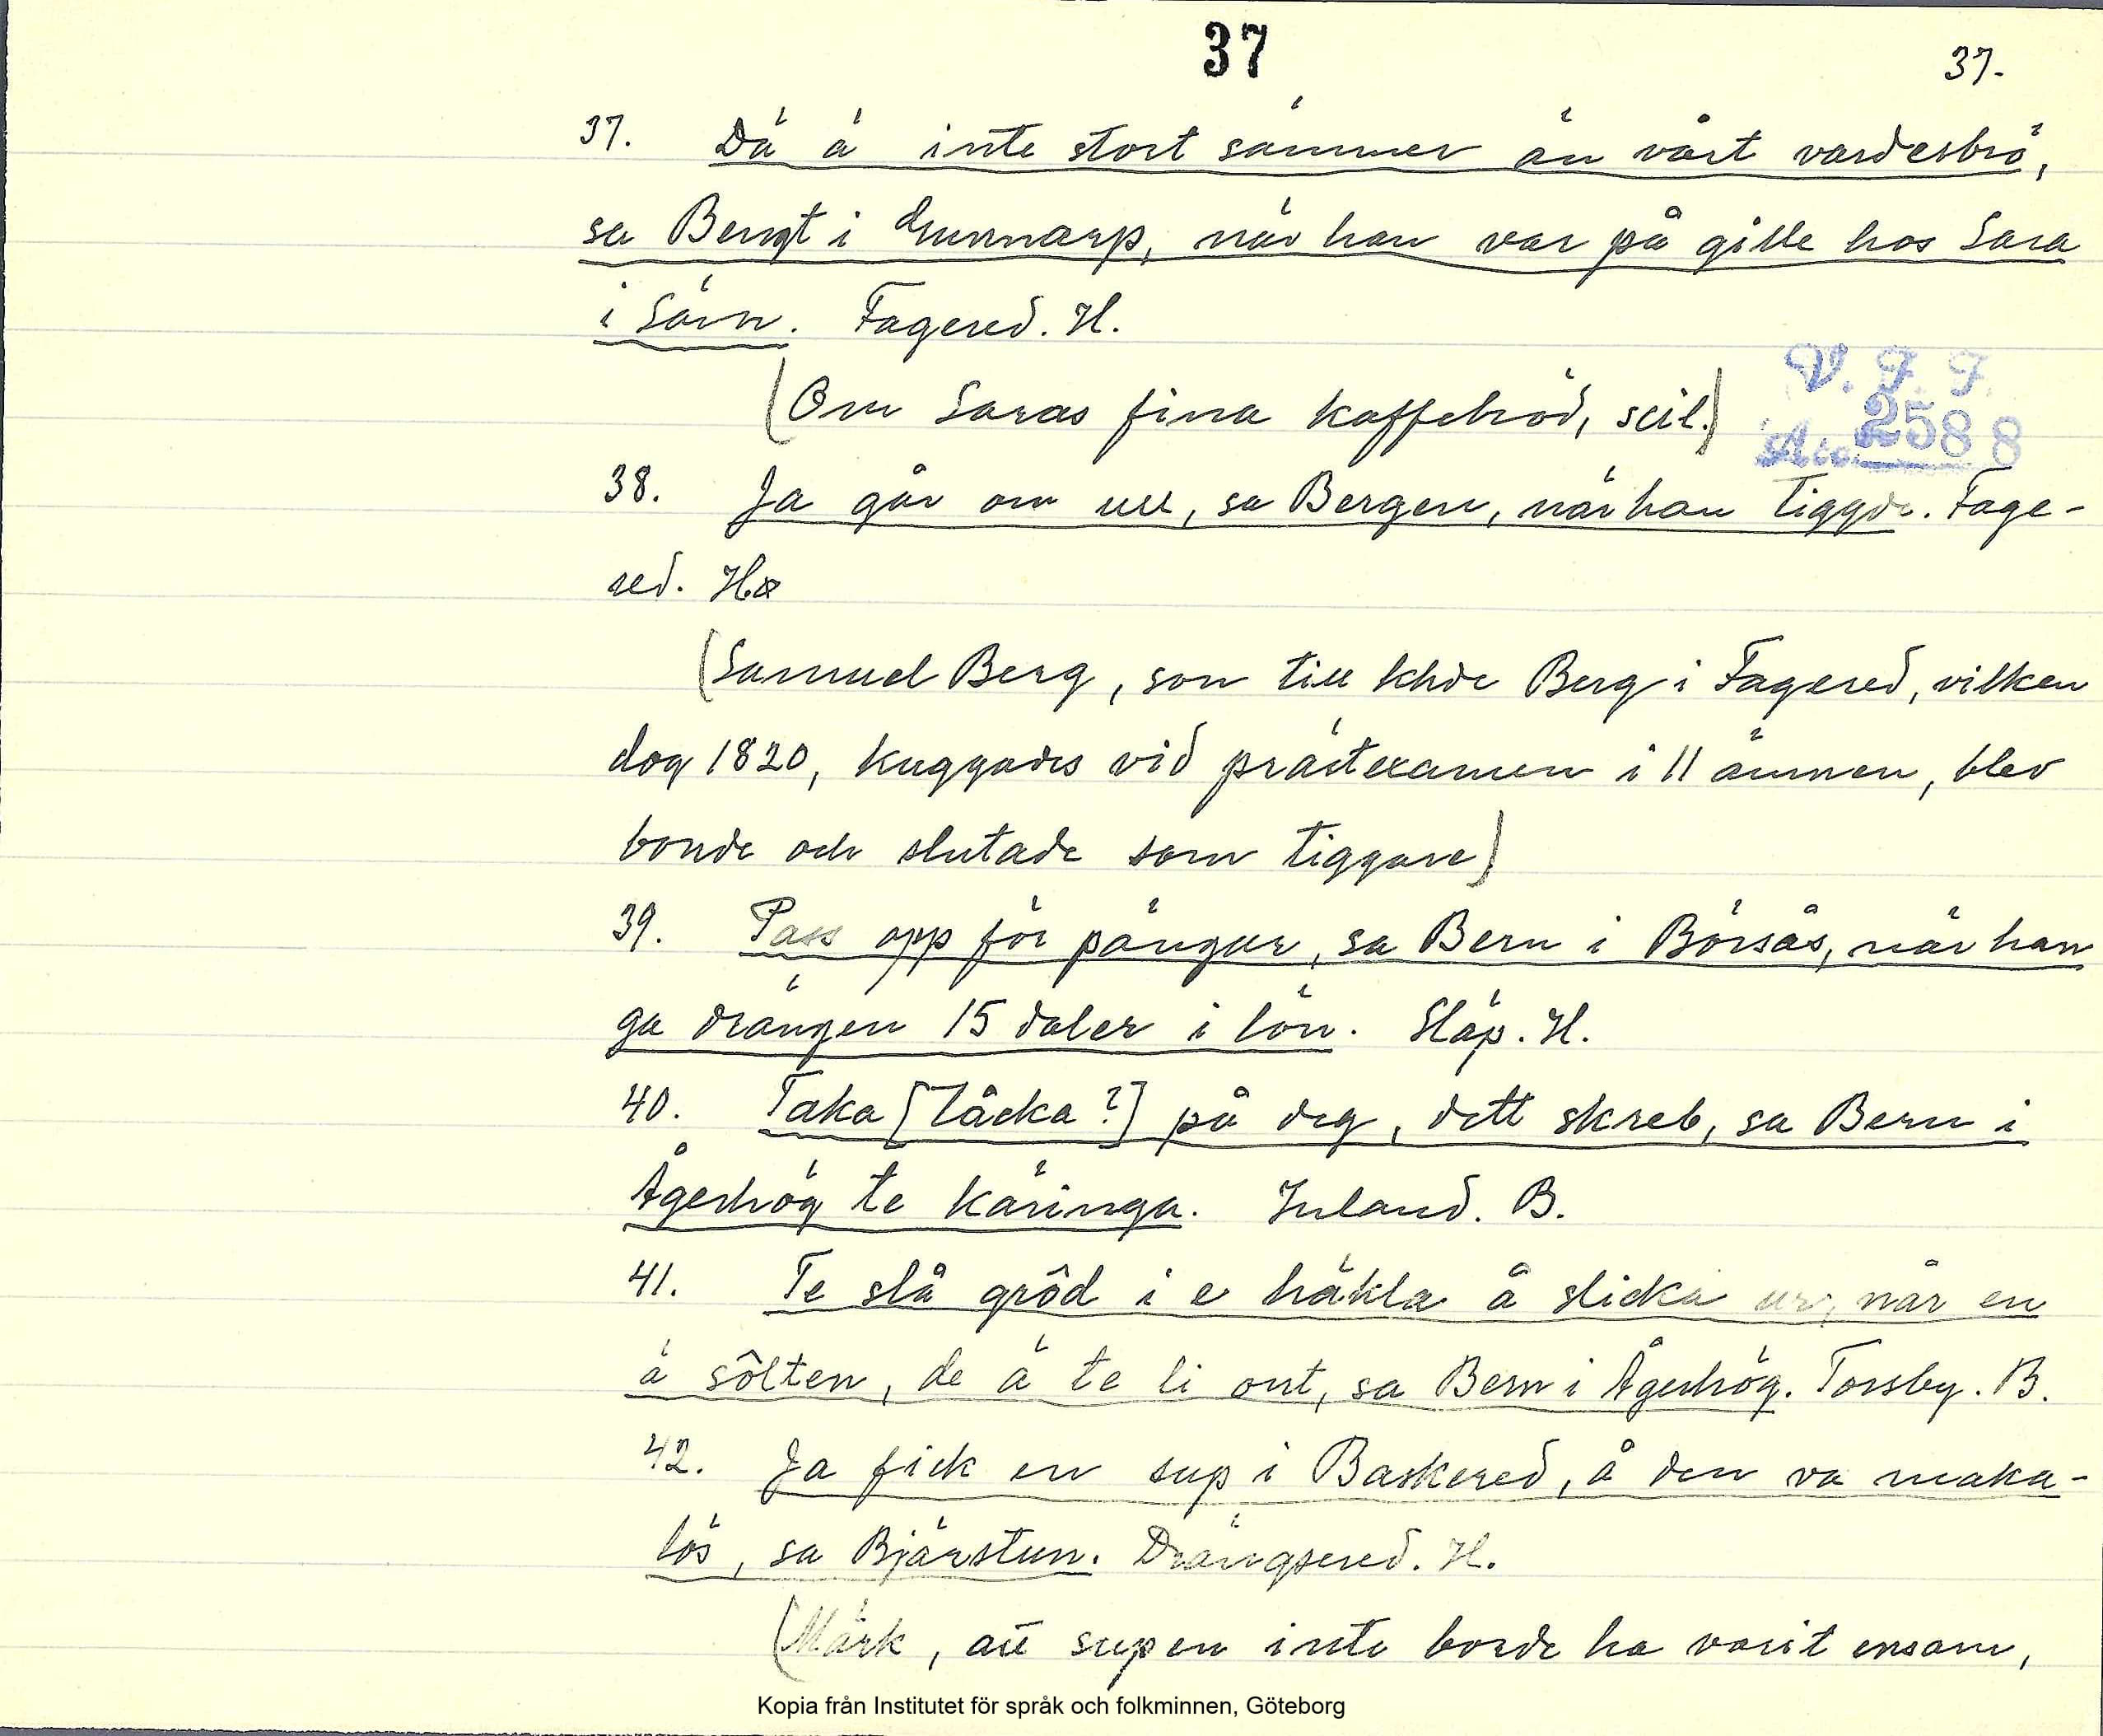 37
37.
37. Dä ä inte stort sämmer än vårt vardesbrö,
sa Bengt i Gunnarp, när han var på gille hos Sara
i Sörn. Fagered. H.
(Om Saras fina kaffebröd, scil.)
V. F. F.
Acc. 2588
38. Ja går om ull, sa Bergen, när han tiggde. Fage-
red. H.
(Samuel Berg, son till khde Berg i Fagered, vilken
dog 1820, kuggades vid prästexamen i 11 ämnen, blev
bonde och slutade som tiggare)
39. Pass opp för pängar, sa Bern i Börsås, när han
ga drängen 15 daler i lön. Släp. H.
40. Taka [Tåcka?] på deg, ditt skreb, sa Bern i
Ågerhög te käringa. Inland. B.
41. Te slå grôd i e häkla å slicka ur, når en
ä sôlten, de ä te li ont, sa Bern i Ågerhög. Torsby. B.
42. Ja fick en sup i Baskered, å den va maka-
lös, sa Bjärstun. Drängsered. H.
(Märk, att supen inte borde ha varit ensam,
Kopia från Institutet för språk och folkminnen, Göteborg